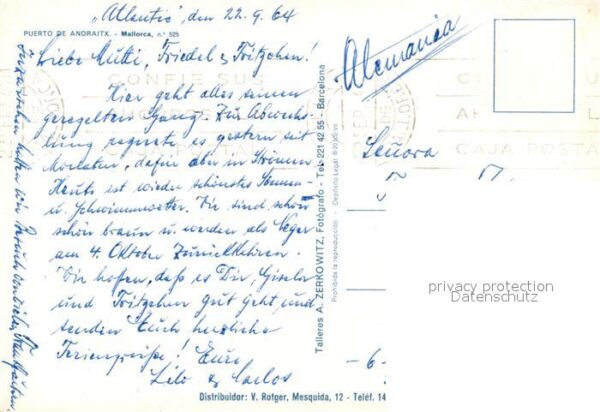 „Atlantic", den 22.9.64
PUERTO DE ANDRAITX. - Mallorca, n.º 525
Liebe Mutti, Friedel & Fritzchen!
Hier geht alles seinen
geregelten Gang. Zur Abwechs-
lung regnete es gestern seit
Monaten, dafür aber in Strömen
Heute ist wieder schönstes Sonnen-
u. Schwimmwetter. Wir sind schon
schön braun u. werden als Neger
am 4. Oktober zurückkehren.
Wir hoffen, daß es Dir, Gisela
und Fritzchen gut geht, und
senden Euch herzliche
Feriengrüße! Eure
Lilo & Carlos
Inzwischen hatten wir Besuch
Talleres A. ZERKOWITZ, Fotógrafo - Tel. 221 42 55 - Barcelona
Prohibida la reproducción - Depósito Legal
Distribuidor: V. Rotger, Mesquida, 12 - Teléf. 14
Alemania
CONFIE SUS
CAJA POSTA
Señora
-6-
privacy protection
Datenschutz